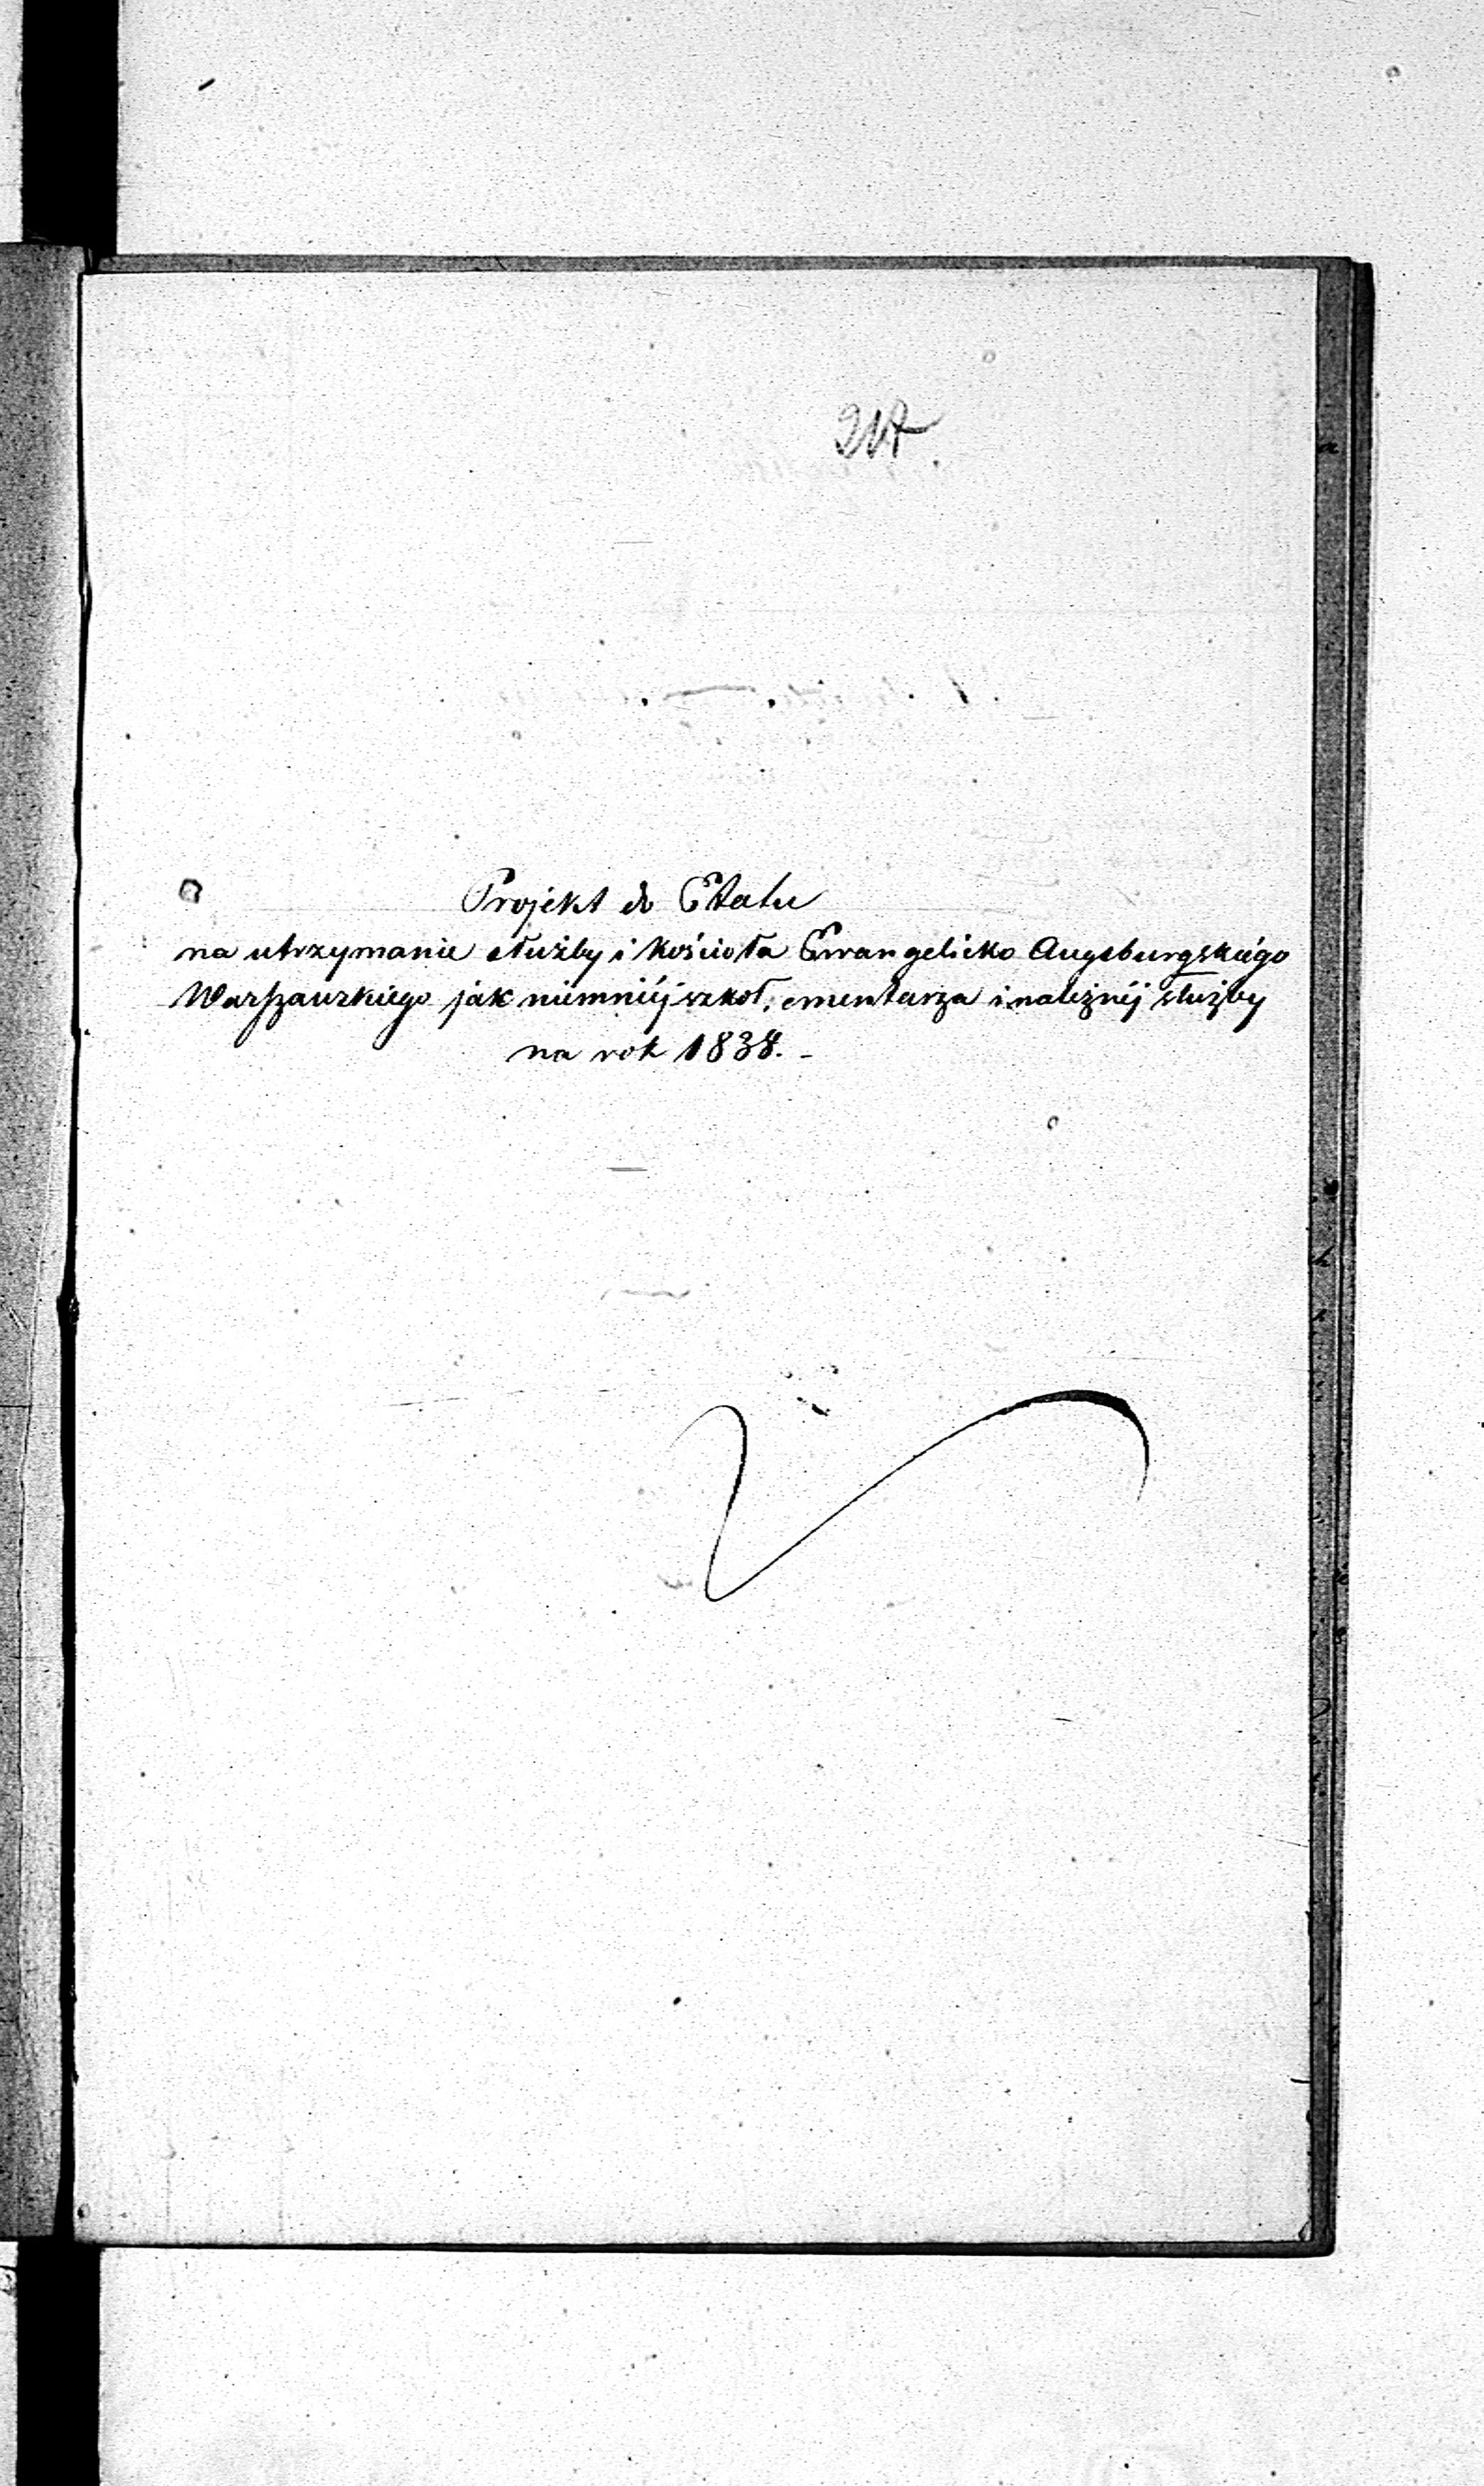 217.
Projekt do Etatu
na utrzymanie służby i kościoła Ewangelicko Augsburgskiégo
Warszawskiego jak niemniéj szkoł, cmentarza i należnéj służby
na rok 1838. -